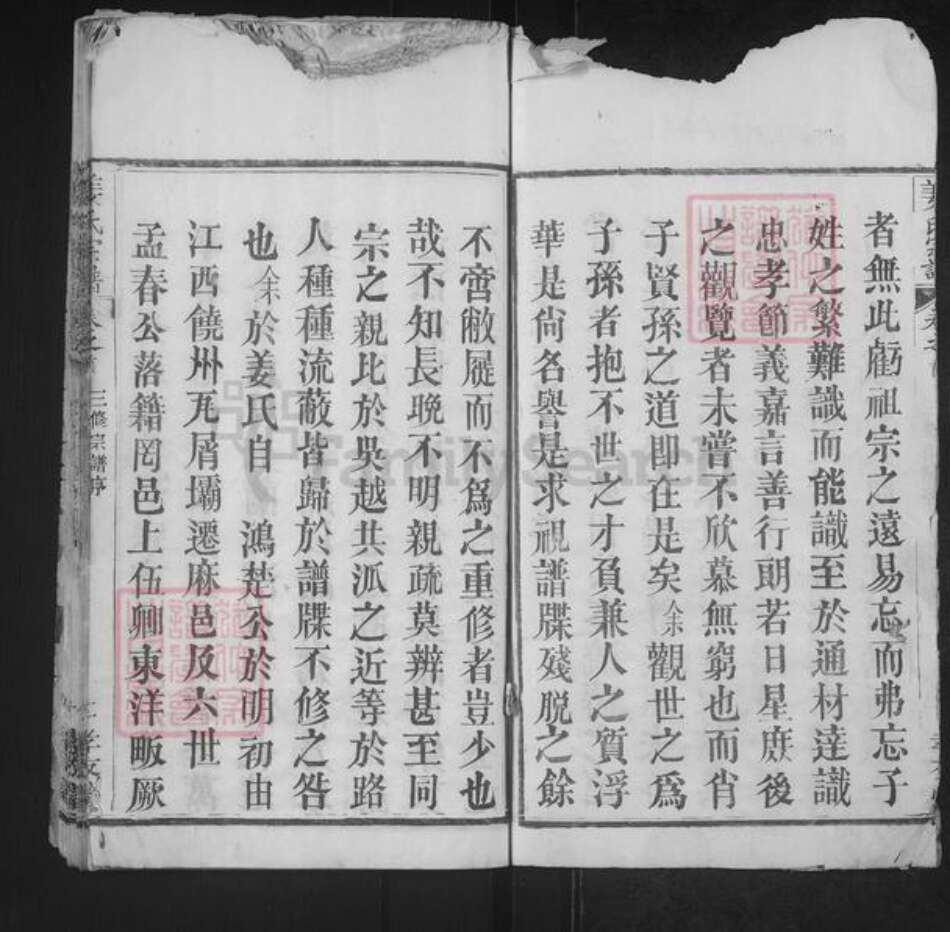 者無此虧祖宗之遠易忘而弗忘子
姓之繁難識而能識至於通材達識
忠孝節義嘉言善行朗若日星庶後
之觀覽者未嘗不欣慕無窮也而肖
子賢孫之道即在是矣余觀世之爲
子孫者抱不世之才負兼人之質浮
華是尙名譽是求視譜牒殘脫之餘
不啻敝屣而不爲之重修者豈少也
哉不知長晚不明親疏莫辨甚至同
宗之親比於吳越共派之近等於路
人種種流蔽皆歸於譜牒不修之咎
也余於姜氏自 鴻楚公於明初由
江西饒州瓦屑壩遷麻邑及六世
孟春公落籍岡邑上伍鄉東洋畈厥
姜氏宗譜
三修宗譜序
FamilySearch